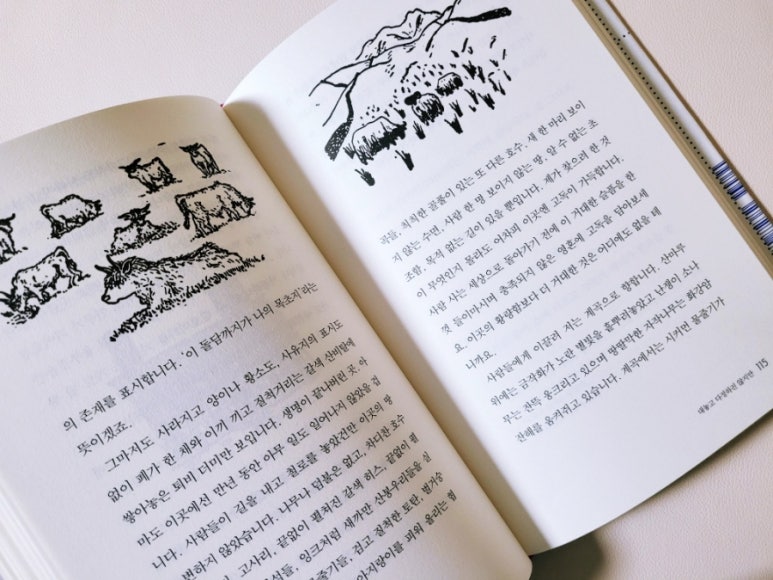 의 존재를 표시합니다. '이 돌담까지가 나의 목초지'라는
뜻이겠죠.
그마저도 사라지고 양이나 황소도, 사유지의 표시도
없이 폐가 한 채와 이끼 끼고 질척거리는 갈색 산비탈에
쌓아놓은 퇴비 더미만 보입니다. 생명이 끝나버린 곳. 아
마도 이곳에선 만년 동안 아무 일도 일어나지 않았을 겁
니다. 사람들이 길을 내고 철로를 놓았건만 이곳의 땅
변하지 않았습니다. 나무나 덤불은 없고, 차디찬 호수
고사리, 끝없이 펼쳐진 갈색 히스, 끝없이 펼
잉크처럼 새까만 산봉우리들을 실
검고 질척한 토탄, 벌거숭
아지랑이를 피워 올리는 웜
퀴들, 축축한 골풀이 있는 또 다른 호수, 새 한 마리 보이
지 않는 수면, 사람 한 명 보이지 않는 땅, 알 수 없는 초
조함, 목적 없는 길이 있을 뿐입니다. 제가 찾으려 한 것
이 무엇인지 몰라도 어차피 이곳엔 고독이 가득합니다.
사람 사는 세상으로 돌아가기 전에 이 거대한 슬픔을 한
껏 들이마시며 충족되지 않은 영혼에 고독을 담아보세
요. 이곳의 황량함보다 더 거대한 것은 어디에도 없을 테
니까요.
사람들에게 이끌려 저는 계곡으로 향합니다. 산마루
위에는 금작화가 노란 별빛을 흩뿌려놓았고 난쟁이 소나
무는 잔뜩 웅크리고 있으며 땅딸막한 자작나무는 화강암
잔해를 움켜쥐고 있습니다. 계곡에서는 시커먼 물줄기가
내놓고 다정하진 않지만 115